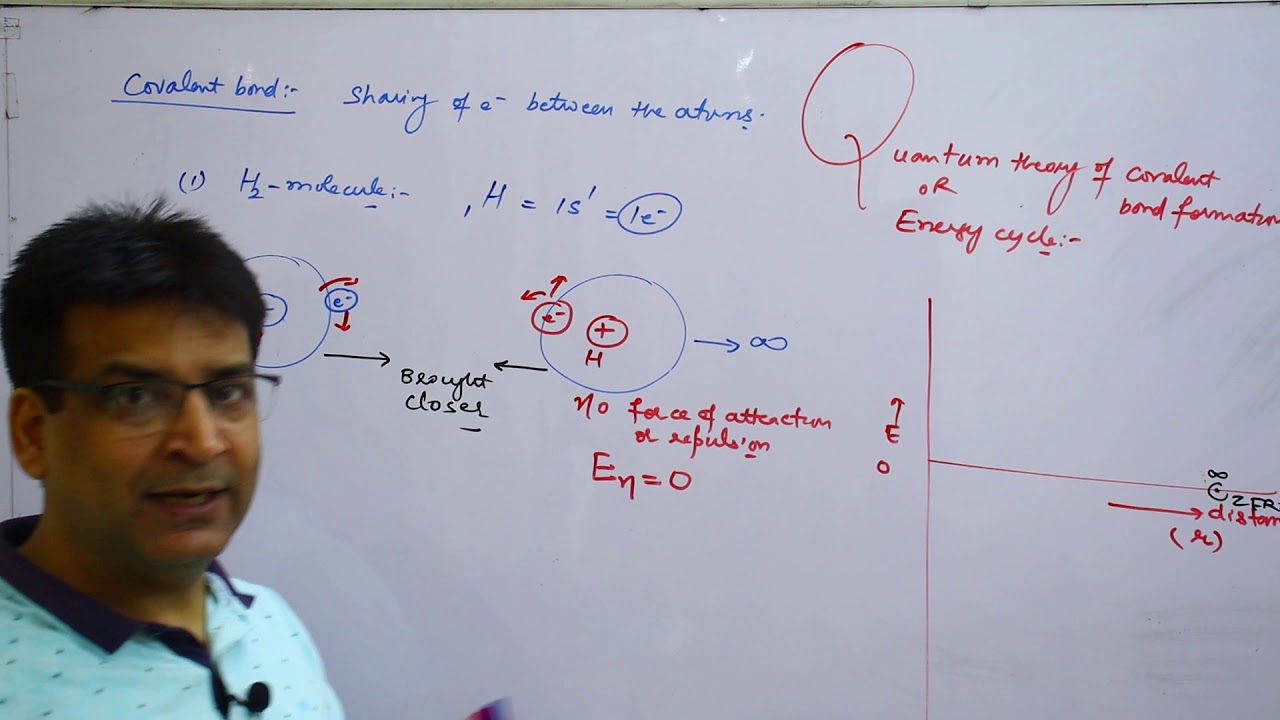 Covalent bond:- Sharing of e⁻ between the atoms.
(1) H₂-molecule:- , H = 1s¹ = 1e⁻
Quantum theory of covalent
bond formation
OR
Energy cycle:-
e⁻
e⁻
+
H
→ ∞
Brought
closer
No force of attraction
or repulsion
Eη = 0
↑
E
0
∞
ZER
distan
(r)